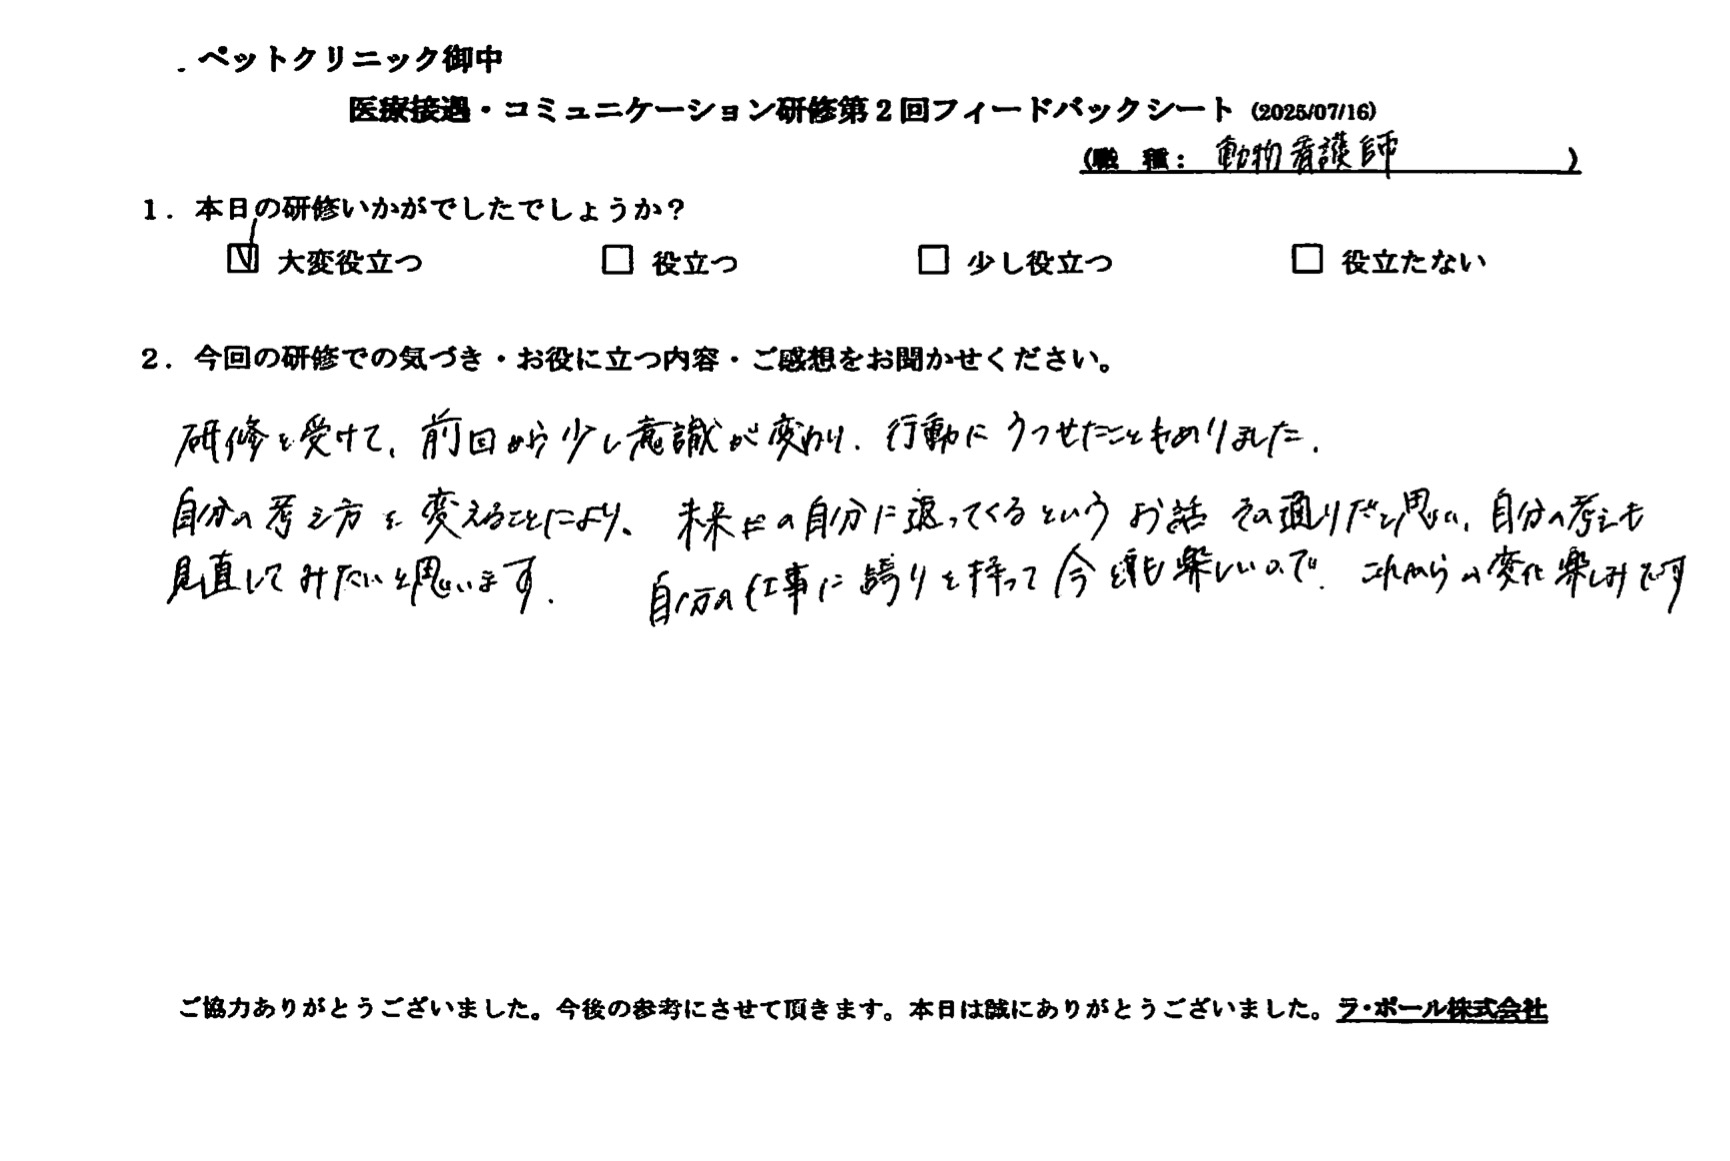 ペットクリニック御中
医療接遇・コミュニケーション研修第2回フィードバックシート (2025/07/16)
(職 種: 動物看護師 )
1. 本日の研修いかがでしたでしょうか?
☑ 大変役立つ □ 役立つ □ 少し役立つ □ 役立たない
2. 今回の研修での気づき・お役に立つ内容・ご感想をお聞かせください。
研修を受けて、前回から少し意識が変わり、行動にうつせたこともありました。
自分の考え方を変えることにより、未来の自分に返ってくるというお話 その通りだと思い、自分の考えも
見直してみたいと思います。 自分の仕事に誇りを持って今も楽しいので、これからの変化楽しみです
ご協力ありがとうございました。今後の参考にさせて頂きます。本日は誠にありがとうございました。ラ・ポール株式会社